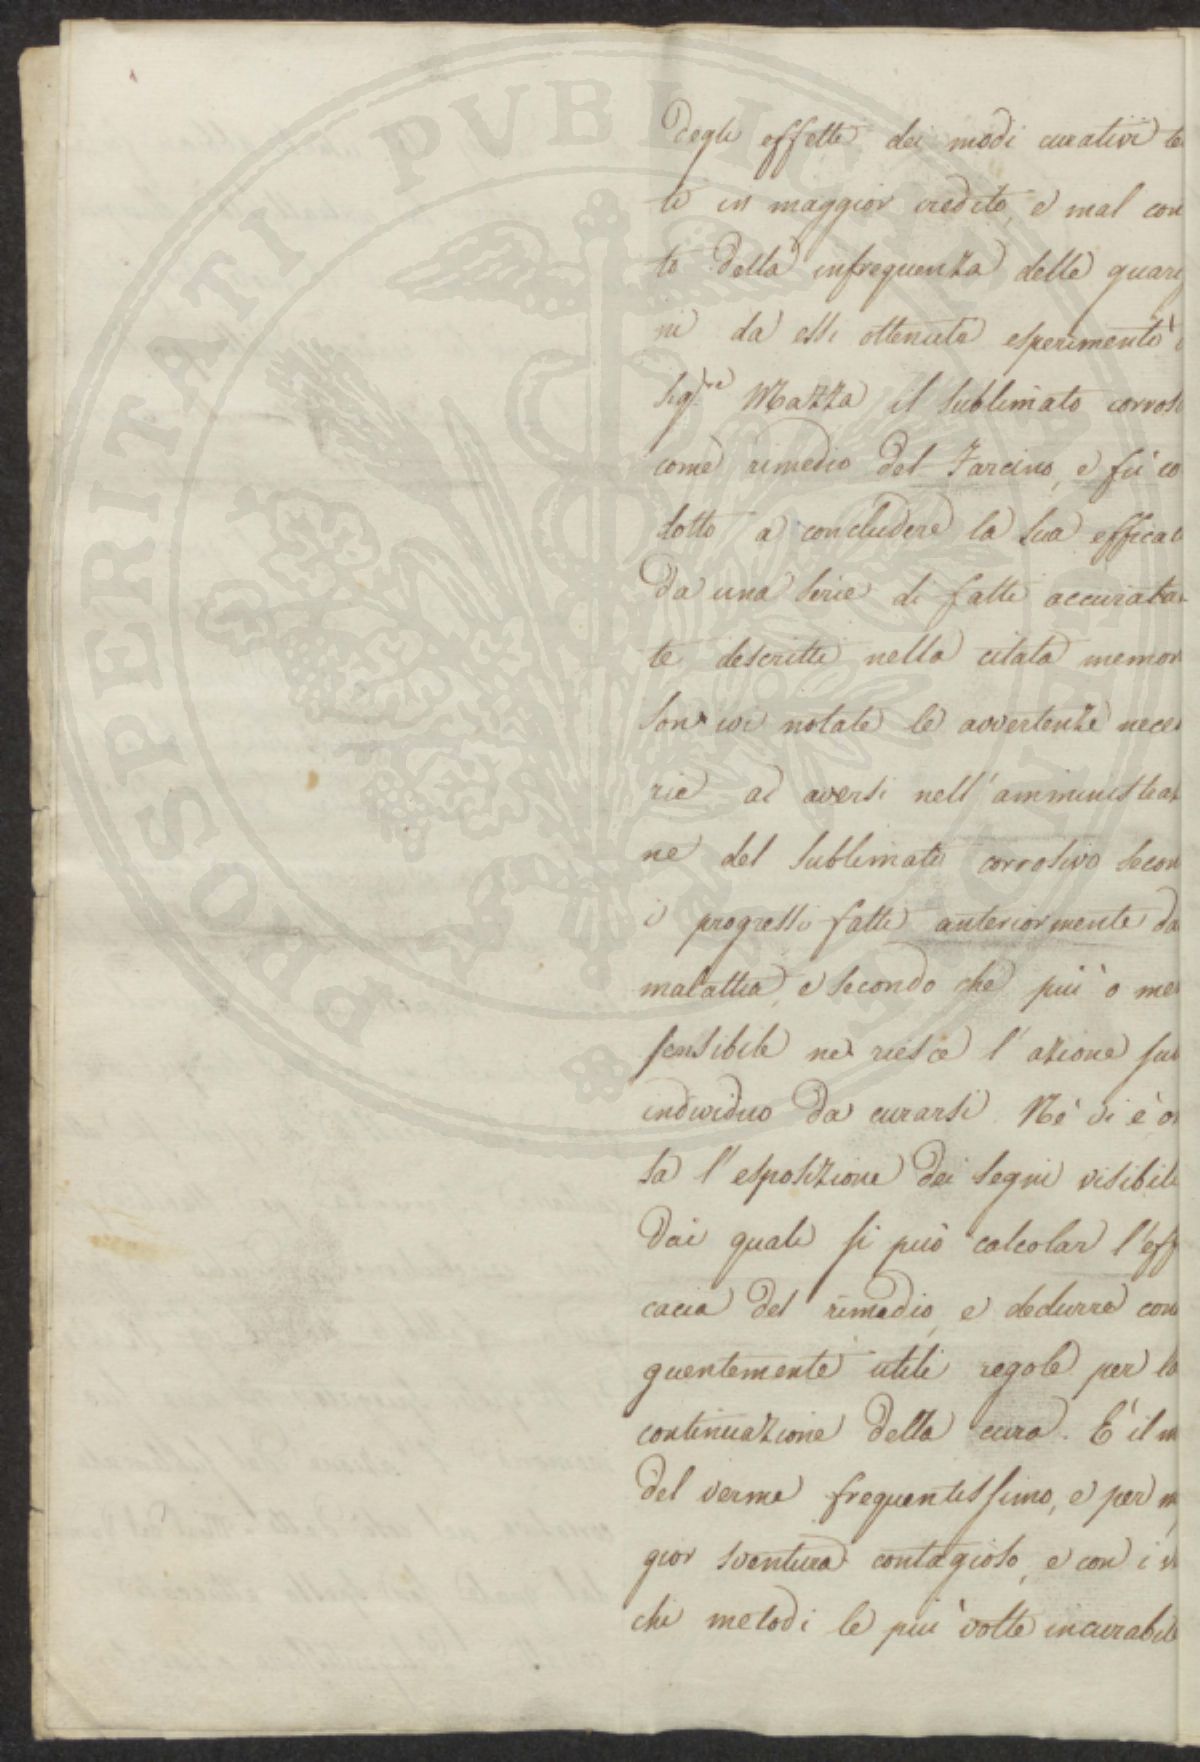 PROSPERITATI PVBLICAE
degli effetti dei modi curativi te
ti in maggior credito, e mal con
to della infrequenza delle guari
ni da essi ottenute esperimentò i
Sig.re Mazza il sublimato corros
come rimedio del Farcino, e fù co
dotto a concludere la sua efficac
da una serie di fatti accurata
te descritti nella citata memor
Son ivi notate le avvertenze neces
rie ad aversi nell'amministraz
ne del sublimato corrosivo secon
i progressi fatti anteriormente da
malattia, e secondo che più o me
sensibile ne riesce l'azione sul
individuo da curarsi. Nè vi è o
sa l'esposizione dei segni visibili
dai quali si può calcolar l'eff
cacia del rimedio, e dedurre con
guentemente utili regole per la
continuazione della cura. È il m
del verme frequentissimo, e per m
gior sventura contagioso, e con i v
chi metodi le più volte incurabile